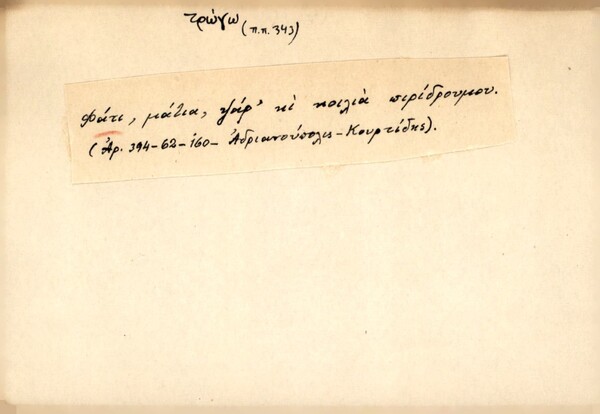 τρώγω (π.π. 343)
Φάτι, μάτια, ψάρ' κὶ κοιλιὰ πιρίδρουμου.
(Ἀρ. 394-62-160- Ἀδριανούπολις-Κουρτίδης).